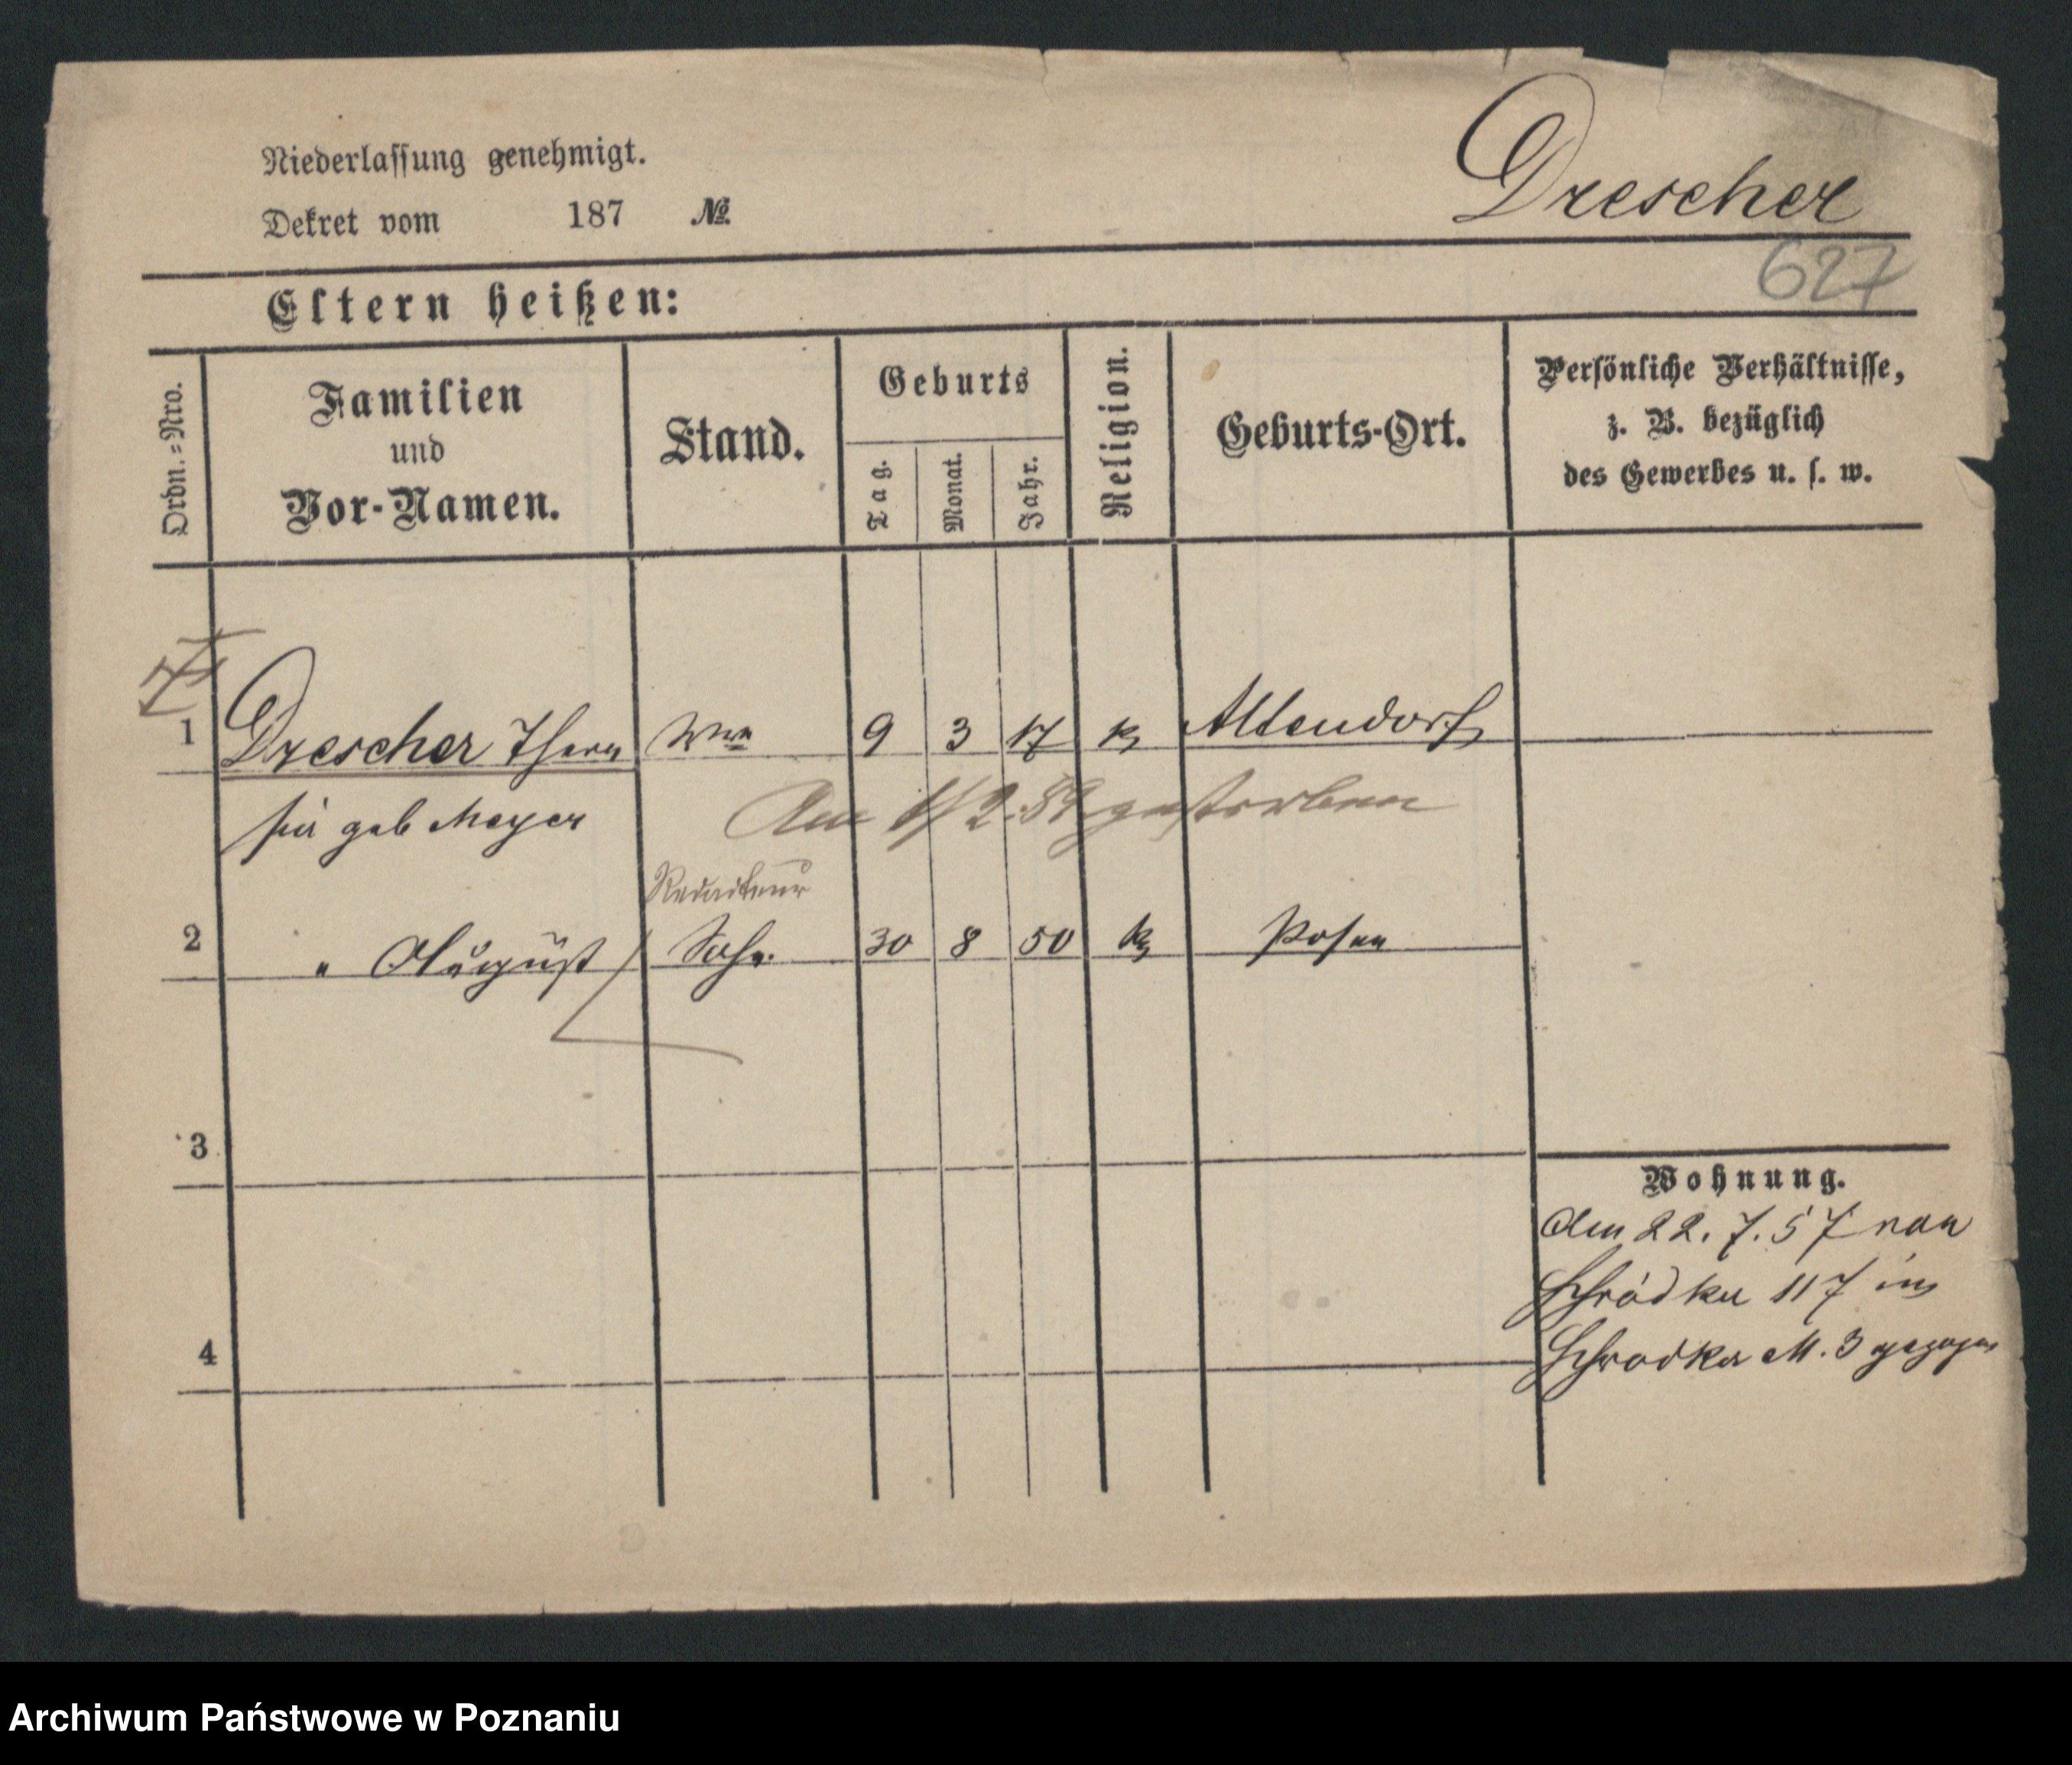 Niederlassung genehmigt.
Dekret vom 187 №.
Drescher
627
Eltern heißen:
Ordn.=Nro.
Familien
und
Vor-Namen.
Stand.
Geburts
Tag.
Monat.
Jahr.
Religion.
Geburts-Ort.
Persönliche Verhältnisse,
z. B. bezüglich
des Gewerbes u. s. w.
1 Drescher There Wwe 9 3 17 k Altendorf
sia geb Meyer
Am 1/2.59 gestorben
Redakteur
2 " August Sohn 30 8 50 k Posen
3
4
Wohnung.
Am 22. 7. 57 von
Schrodka 117 in
Schrodka M. 3 gezogen
Archiwum Państwowe w Poznaniu